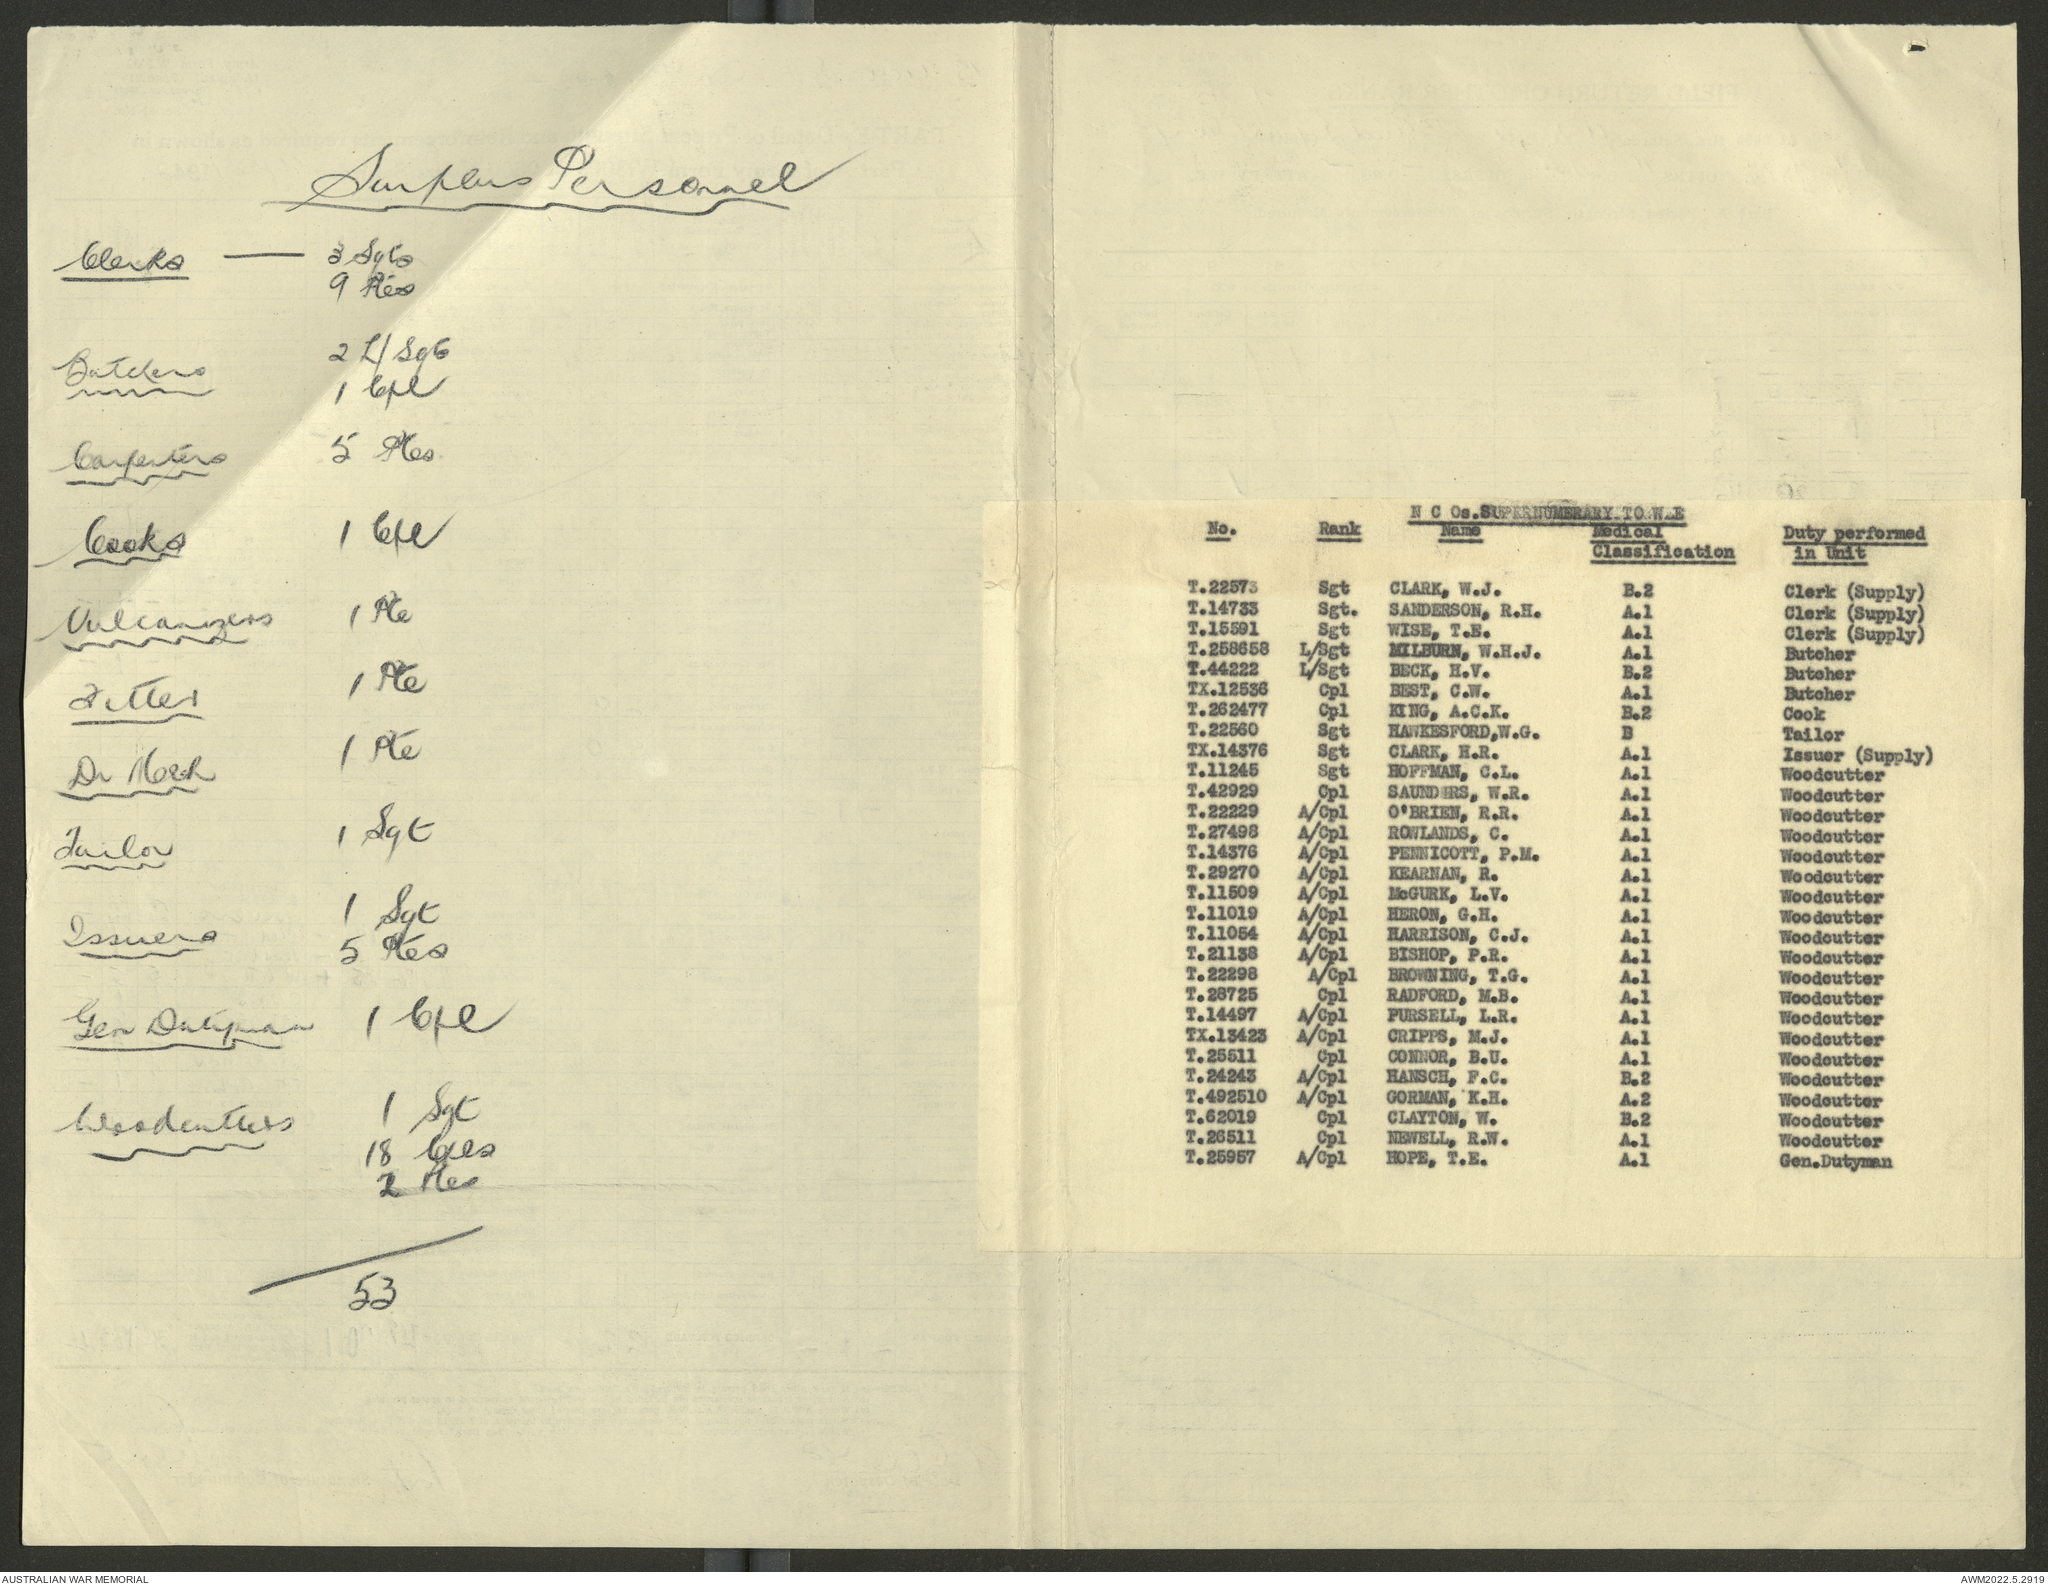 Surplus Personnel
Clerks — 3 Sgts
9 Ptes
Butchers 2 L/Sgts
1 Cpl
Carpenters 5 Ptes
Cooks 1 Cpl
Vulcanizers 1 Pte
Fitter 1 Pte
Dr Mech 1 Pte
Tailor 1 Sgt
Issuers 1 Sgt
5 Ptes
Gen Dutyman 1 Cpl
Woodcutters 1 Sgt
18 Cpls
2 Ptes
53
N C Os. SUPERNUMERARY TO W.E
No. Rank Name Medical Classification Duty performed in Unit
T.22573 Sgt CLARK, W.J. B.2 Clerk (Supply)
T.14733 Sgt. SANDERSON, R.H. A.1 Clerk (Supply)
T.15591 Sgt WISE, T.E. A.1 Clerk (Supply)
T.258658 L/Sgt MILBURN, W.H.J. A.1 Butcher
T.44222 L/Sgt BECK, H.V. B.2 Butcher
TX.12536 Cpl BEST, C.W. A.1 Butcher
T.262477 Cpl KING, A.C.K. B.2 Cook
T.22560 Sgt HAWKESFORD,W.G. B Tailor
TX.14376 Sgt CLARK, H.R. A.1 Issuer (Supply)
T.11245 Sgt HOFFMAN, C.L. A.1 Woodcutter
T.42929 Cpl SAUNDERS, W.R. A.1 Woodcutter
T.22229 A/Cpl O'BRIEN, R.R. A.1 Woodcutter
T.27498 A/Cpl ROWLANDS, C. A.1 Woodcutter
T.14376 A/Cpl PENNICOTT, P.M. A.1 Woodcutter
T.29270 A/Cpl KEARNAN, R. A.1 Woodcutter
T.11509 A/Cpl McGURK, L.V. A.1 Woodcutter
T.11019 A/Cpl HERON, G.H. A.1 Woodcutter
T.11054 A/Cpl HARRISON, C.J. A.1 Woodcutter
T.21138 A/Cpl BISHOP, P.R. A.1 Woodcutter
T.22298 A/Cpl BROWNING, T.G. A.1 Woodcutter
T.28725 Cpl RADFORD, M.B. A.1 Woodcutter
T.14497 A/Cpl PURSELL, L.R. A.1 Woodcutter
TX.13423 A/Cpl CRIPPS, M.J. A.1 Woodcutter
T.25511 Cpl CONNOR, B.U. A.1 Woodcutter
T.24243 A/Cpl HANSCH, F.C. B.2 Woodcutter
T.492510 A/Cpl GORMAN, K.H. A.2 Woodcutter
T.62019 Cpl CLAYTON, W. B.2 Woodcutter
T.26511 Cpl NEWELL, R.W. A.1 Woodcutter
T.25957 A/Cpl HOPE, T.E. A.1 Gen.Dutyman
AUSTRALIAN WAR MEMORIAL
AWM2022.5.2919